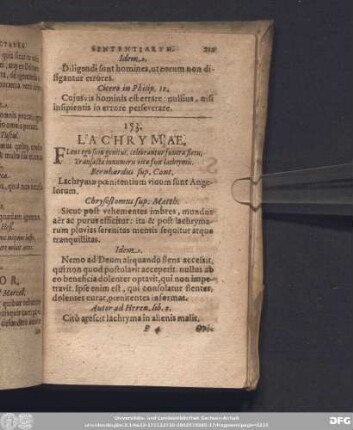 SENTENTIARUM.
Idem.
Diligendi sunt homines, ut eorum non di-
ligantur errores.
Cicero in Philip. 12.
Cujusvis hominis est errare: nullius, nisi
insipientis in errore perseverare.
153.
LACHRYMAE.
Flens ego sum genitus, celebrantur funera fletu,
Transacta omnino vita fuit lachrymis.
Bernhardus sup. Cant.
Lachrymæ pœnitentium vinum sunt Ange-
lorum.
Chrysostomus sup. Matth.
Sicut post vehementes imbres, mundus
aër ac purus efficitur: ita & post lachryma-
rum pluvias serenitas mentis sequitur atque
tranquillitas.
Idem.
Nemo ad Deum aliquando flens accessit,
qui non quod postulavit acceperit. nullus ab
eo beneficia dolenter optavit, qui non impe-
travit. Ipse enim est, qui consolatur flentes,
dolentes curat, pœnitentes informat.
Autor ad Heren. lib. 2.
Citò arescit lachryma in alienis malis.
P 4
Universitäts- und Landesbibliothek Sachsen-Anhalt
DFG